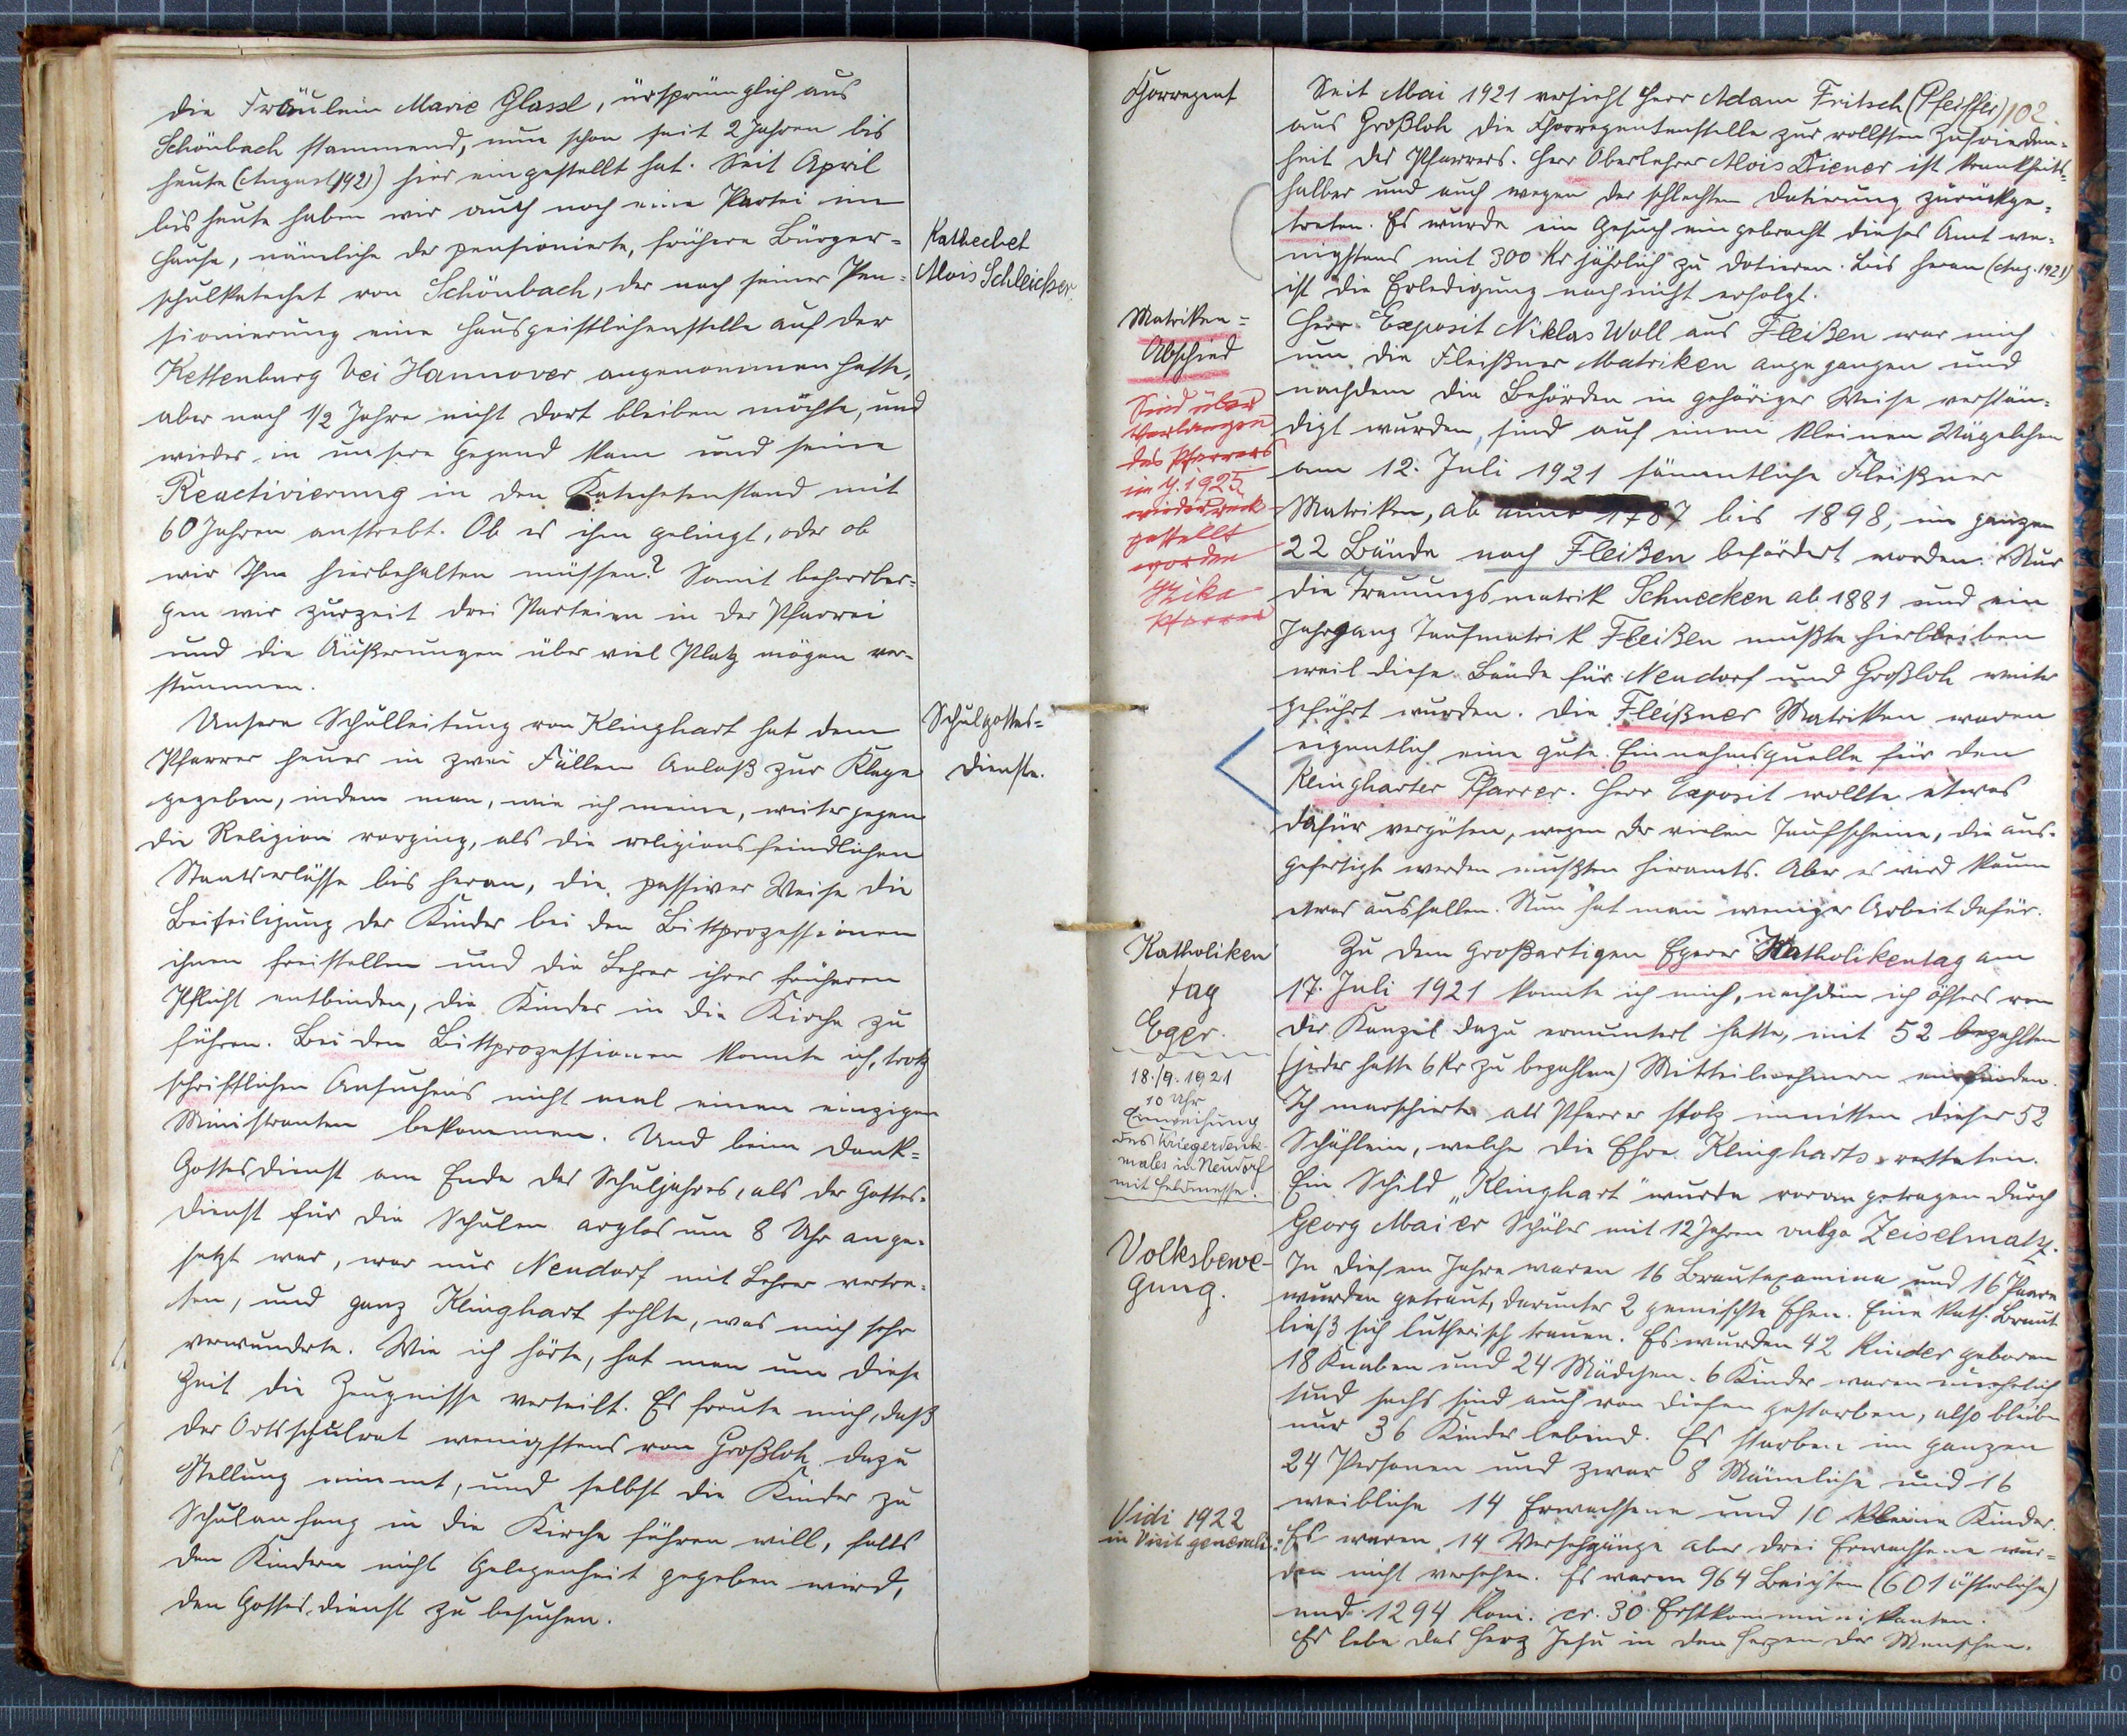 die Fräulein Marie Glassl, ursprünglich aus
Schönbach stammend, nun schon seit 2 Jahren bis
heute (August 1921) hier eingestellt hat. Seit April
bis heute haben wir auch noch eine Partei im
Hause, nämliche der pensionierte, frühere Bürger=
schulkatechet von Schönbach, der nach seiner Pen=
sionierung eine Hausgeistlichenstelle auf der
Kettenburg bei Hannover angenommen hatte,
aber nach 1/2 Jahre nicht dort bleiben möchte, und
wieder in unsere Gegend kam und seine
Reactivierung in den Katechetenstand mit
60 Jahren anstrebt. Ob es ihm gelingt, oder ob
wir Ihn hierbehalten müssen? Somit beherber=
gen wir zurzeit drei Parteien in der Pfarrei
und die Äußerungen über viel Platz mögen ver=
stummen.
Kathechet
Alois Schleicher.
Unsere Schulleitung von Klinghart hat dem
Pfarrer heuer in zwei Fällen Anlaß zur Klage
gegeben, indem man, wie ich meine, weiter gegen
die Religion vorging, als die religionsfeindlichen
Staatserlässe bis heran, die passiver Weise die
Beiteiligung der Kinder bei den Bittprozessionen
ihnen freistellen und die Lehrer ihrer früheren
Pflicht entbinden, die Kinder in die Kirche zu
führen. Bei den Bittprozessionen konnte ich, trotz
schriftlichen Ansuchens nicht mal einen einzigen
Ministranten bekommen. Und beim Dank=
Gottesdienst am Ende des Schuljahres, als der Gottes=
dienst für die Schulen arglos um 8 Uhr ange=
setzt war, war nur Neudorf mit Lehrer vertre=
ten, und ganz Klinghart fehlte, was mich sehr
verwunderte. Wie ich hörte, hat man um diese
Zeit die Zeugnisse verteilt. Es freute mich, daß
der Ortsschulrat wenigstens von Großloh dazu
Stellung nimmt, und selbst die Kinder zu
Schulanfang in die Kirche führen will, falls
den Kindern nicht Gelegenheit gegeben wird,
den Gottesdienst zu besuchen.
Schulgottes=
dienste.
Chorregent
Seit Mai 1921 versieht Herr Adam Fritsch (Pfeiffer) 102
aus Großloh die Chorregentenstelle zur vollsten Zufrieden=
heit des Pfarrers. Herr Oberlehrer Alois Diener ist krankheits=
halber und auch wegen der schlechten Dotierung zurückge=
treten. Es wurde ein Gesuch eingebracht dieses Amt we=
nigstens mit 300 Kr jährlich zu dotieren. Bis heran (Aug. 1921)
ist die Erledigung noch nicht erfolgt.
Matriken=
Abschied
Sind über
Verlangen
des Pfarrers
im J. 1925
wieder rück
gestellt
worden
Pfarrer
Herr Exposit Niklas Woll aus Fleißen war mich
um die Fleißner Matriken angegangen und
nachdem die Behörden in gehöriger Weise verstän=
digt wurden, sind auf einem kleinen Wägelchen
am 12. Juli 1921 sämmtliche Fleißner
Matriken, ab anno 1787 bis 1898, im ganzen
22 Bände nach Fleißen befördert worden. Nur
die Trauungsmatrik Schnecken ab 1881 und ein
Jahrgang Taufmatrik Fleißen mußte hierbleiben
weil diese Bände für Neudorf und Großloh weiter
geführt wurden. Die Fleißner Matriken waren
eigentlich eine gute Einnahmsquelle für den
Klingharter Pfarrer. Herr Exposit wollte etwas
dafür vergüten, wegen der vielen Taufscheine, die aus=
gefertigt werden mußten hieramts. Aber es wird kaum
etwas ausfallen. Nun hat man weniger Arbeit dafür.
Katholiken
tag
Eger.
18./9. 1921
10 Uhr
Einweihung
des Kriegerdenk=
males in Neudorf
mit Feldmesse.
Zu dem großartigen Egerer Katholikentag am
17. Juli 1921 konnte ich mich, nachdem ich öfters von
der Kanzel dazu ermuntert hatte, mit 52 bezahlten
(jeder hatte 6 Kr zu bezahlen) Mitteilnehmern einfinden.
Ich marschierte als Pfarrer stolz inmitten dieser 52
Schäflein, welche die Ehre Klingharts retteten.
Ein Schild „Klinghart" wurde voran getragen durch
Georg Maier Schüler mit 12 Jahren vulgo Zeiselmatz.
Volksbewe=
gung.
In diesem Jahre waren 16 Brautexamina und 16 Paare
wurden getraut, darunter 2 gemischte Ehen. Eine kath. Braut
ließ sich lutherisch trauen. Es wurden 42 Kinder geboren
18 Knaben und 24 Mädchen. 6 Kinder waren unehelich
und sechs sind auch von diesen gestorben, also bleiben
nur 36 Kinder lebend. Es starben im ganzen
24 Personen und zwar 8 Männliche und 16
weibliche 14 Erwachsene und 10 kleine Kinder.
Vidi 1922
in Visit generali:
Es waren 14 Versehgänge aber drei Erwachsene wur=
den nicht versehen. Es waren 964 Beichten (601 österliche)
und 1294 Kom. cr. 30 Erstkommunikanten.
Es lebe das Herz Jesu in den Herzen der Menschen.